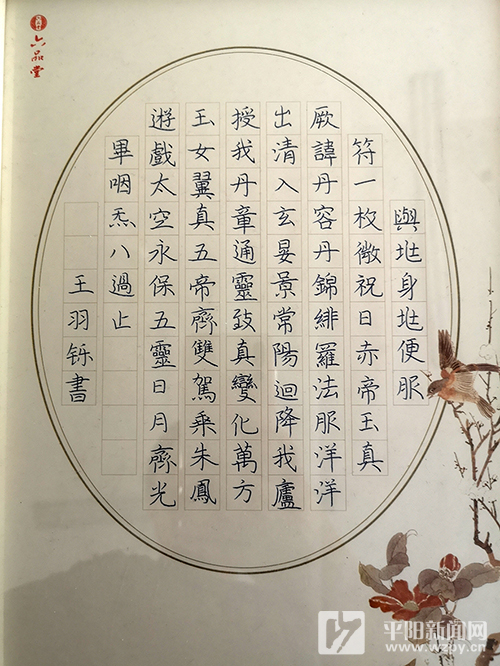 六品堂
與兆身兆便服
符一枚微祝曰赤帝玉真
厥諱丹容丹錦緋羅法服洋洋
出清入玄晏景常陽迴降我廬
授我丹章通靈致真變化萬方
玉女翼真五帝齊雙駕乘朱鳳
遊戲太空永保五靈日月齊光
畢咽炁八過止
王羽铄書
平阳新闻网
www.wzpy.cn